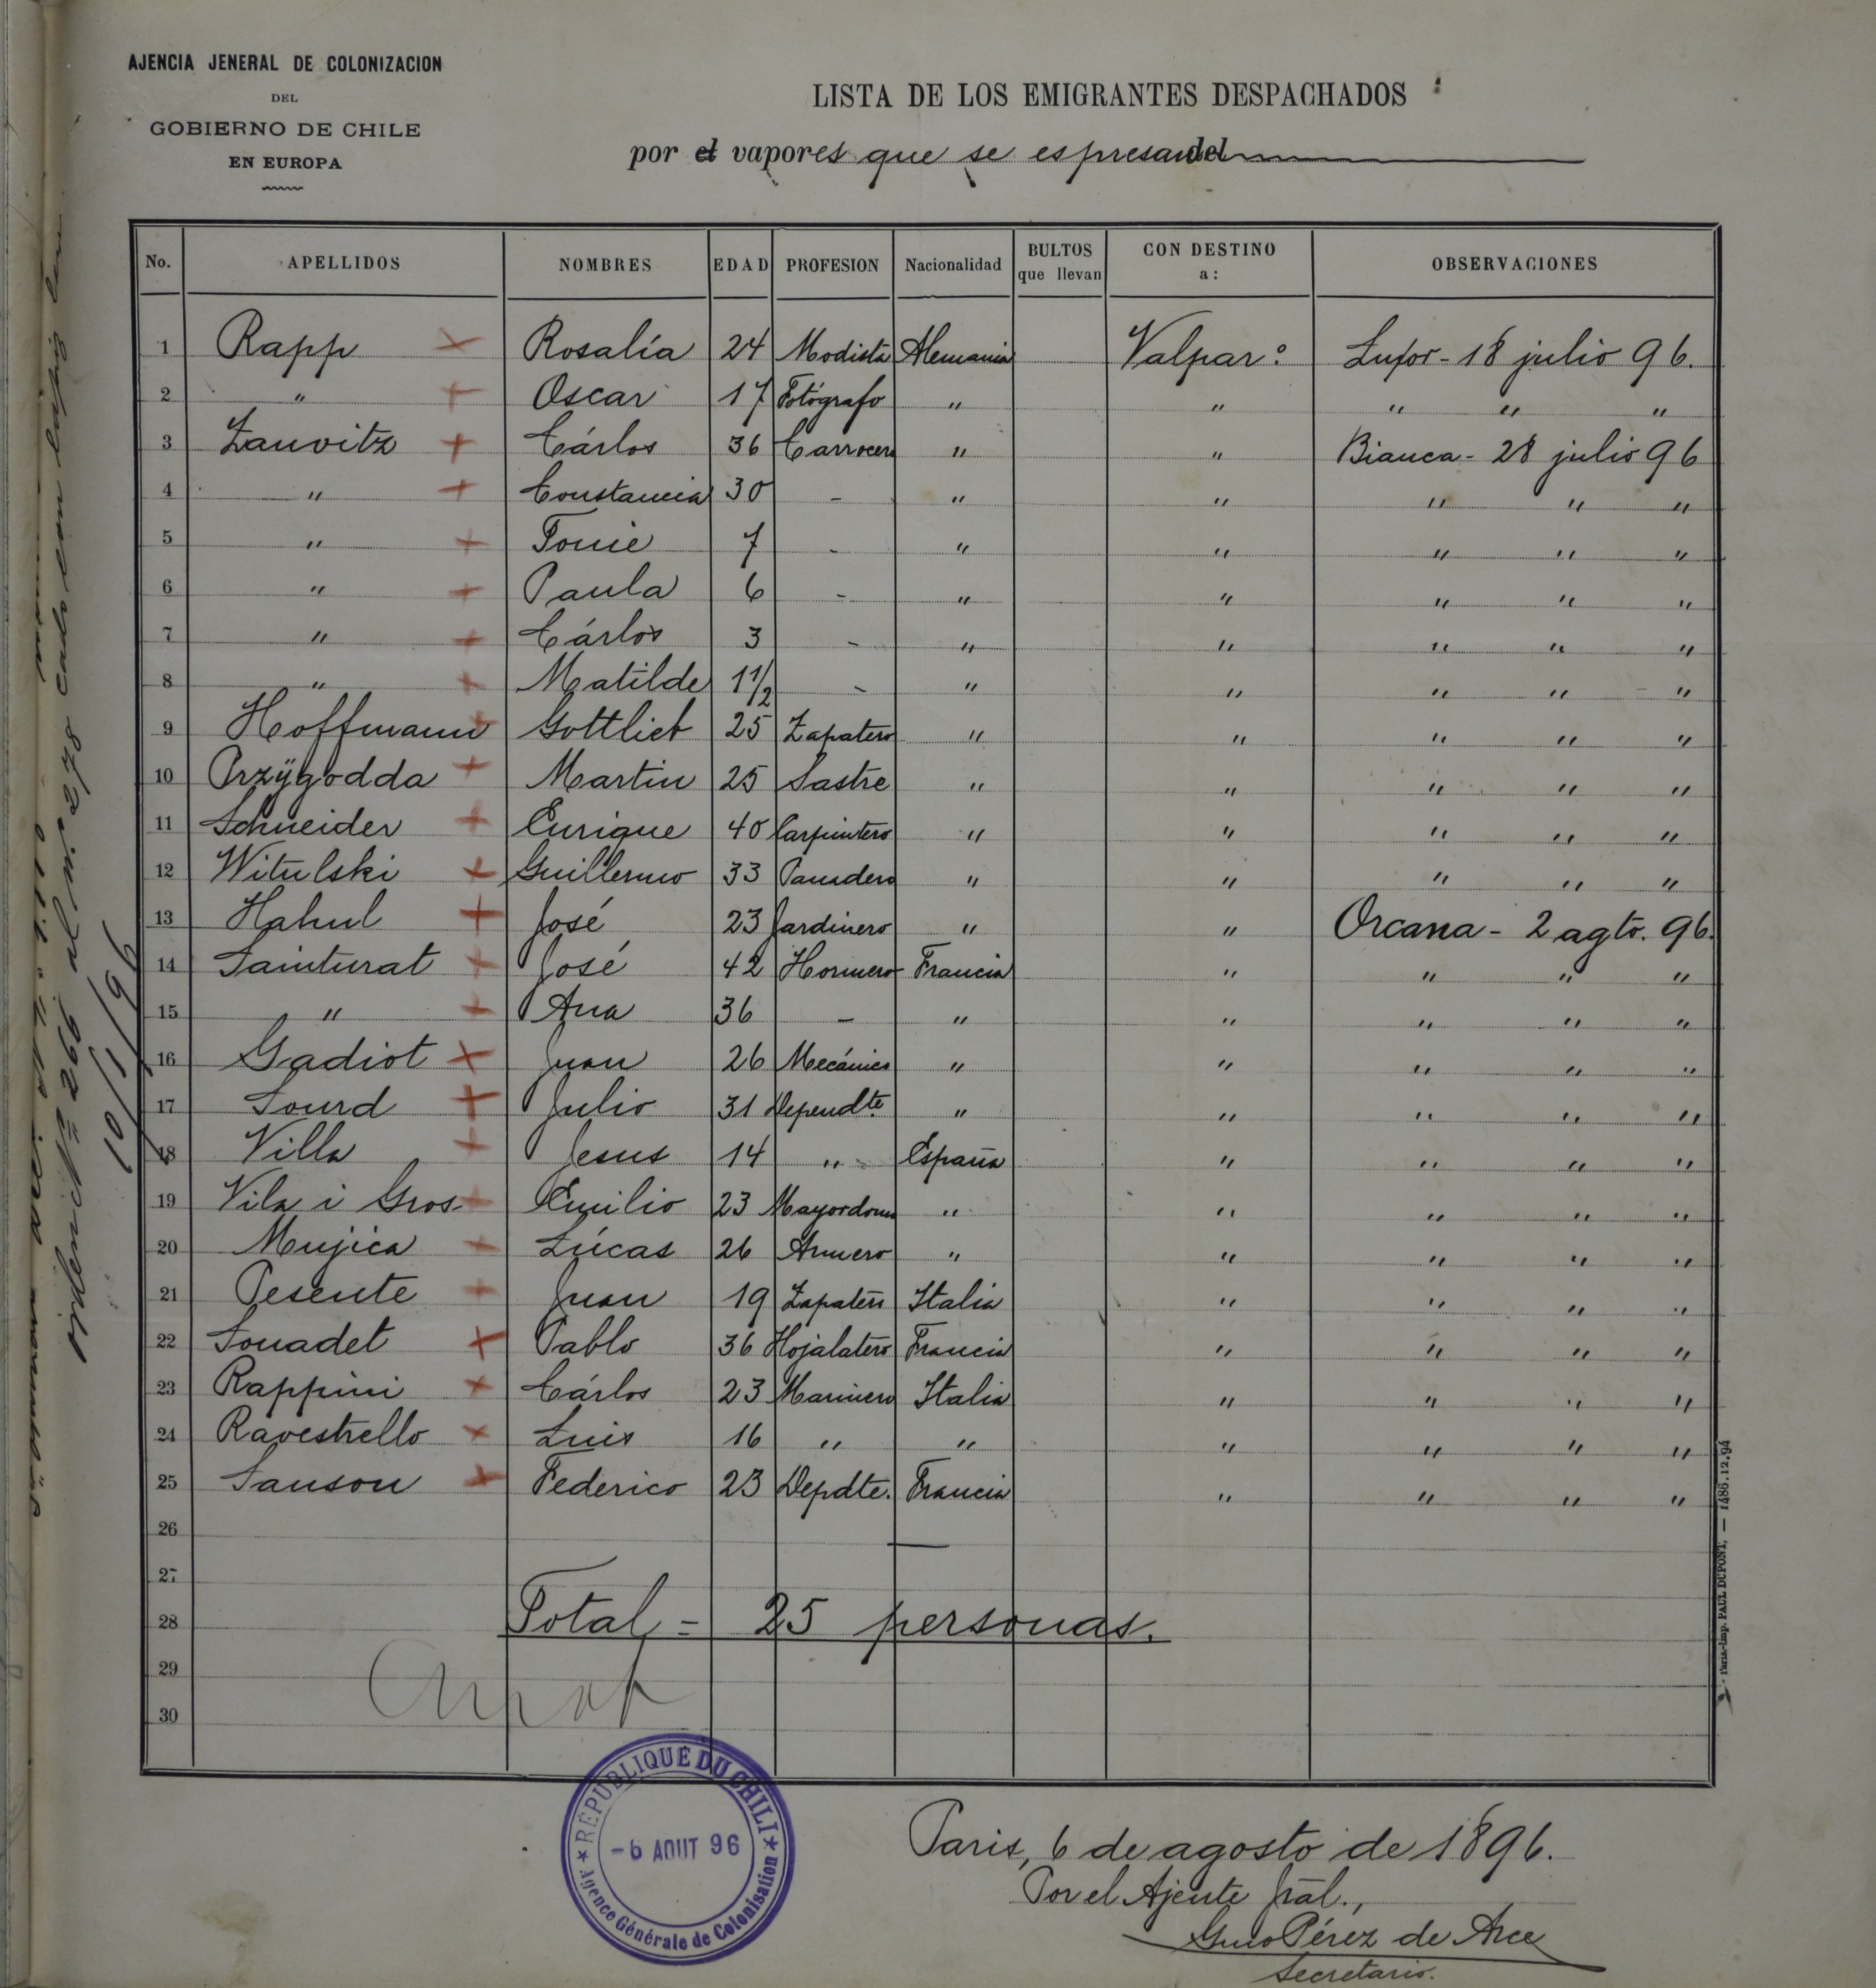 AJENCIA JENERAL DE COLONIZACION
DEL
GOBIERNO DE CHILE
EN EUROPA
LISTA DE LOS EMIGRANTES DESPACHADOS
por el vapores que se espresan del
No. APELLIDOS NOMBRES EDAD PROFESION Nacionalidad BULTOS que llevan CON DESTINO a: OBSERVACIONES
1 Rapp Rosalía 24 Modista Alemania Valpar.º Luxor - 18 julio 96.
2 " Oscar 17 Fotógrafo " " " " "
3 Zauvitz Cárlos 36 Carrocero " " Bianca - 28 julio 96
4 " Constancia 30 - " " " " "
5 " Tonie 7 - " " " " "
6 " Paula 6 - " " " " "
7 " Cárlos 3 - " " " " "
8 " Matilde 1 1/2 - " " " " "
9 Hoffmann Gottlieb 25 Zapatero " " " " "
10 Przÿgodda Martin 25 Sastre " " " " "
11 Schneider Enrique 40 Carpintero " " " " "
12 Witulski Guillermo 33 Panadero " " " " "
13 Hahul José 23 Jardinero " " Orcana - 2 agto. 96.
14 Sainturat José 42 Hornero Francia " " " "
15 " Ana 36 - " " " " "
16 Gadiot Juan 26 Mecánico " " " " "
17 Sourd Julio 31 Dependte " " " " "
18 Villa Jesus 14 " España " " " "
19 Vila i Gros Emilio 23 Mayordomo " " " " "
20 Mujica Lúcas 26 Armero " " " " "
21 Pesente Juan 19 Zapatero Italia " " " "
22 Souadet Pablo 36 Hojalatero Francia " " " "
23 Rappini Cárlos 23 Marinero Italia " " " "
24 Ravestrello Luis 16 " " " " " "
25 Sanson Federico 23 Depdte. Francia " " " "
26
27
28 Total = 25 personas.
29
30
RÉPUBLIQUE DU CHILI
-6 AOUT 96
Agence Générale de Colonisation
Paris, 6 de agosto de 1896.
Por el Ajente Jral.,
Gmo Pérez de Arce
Secretario.
Paris.-Imp. PAUL DUPONT, — 1486.12.94
Nº 266 al nº 278
10/9/96